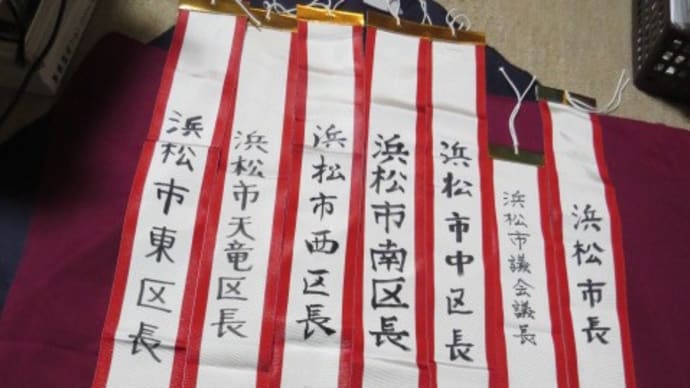 浜松市長
浜松市議会議長
浜松市中区長
浜松市南区長
浜松市西区長
浜松市天竜区長
浜松市東区長